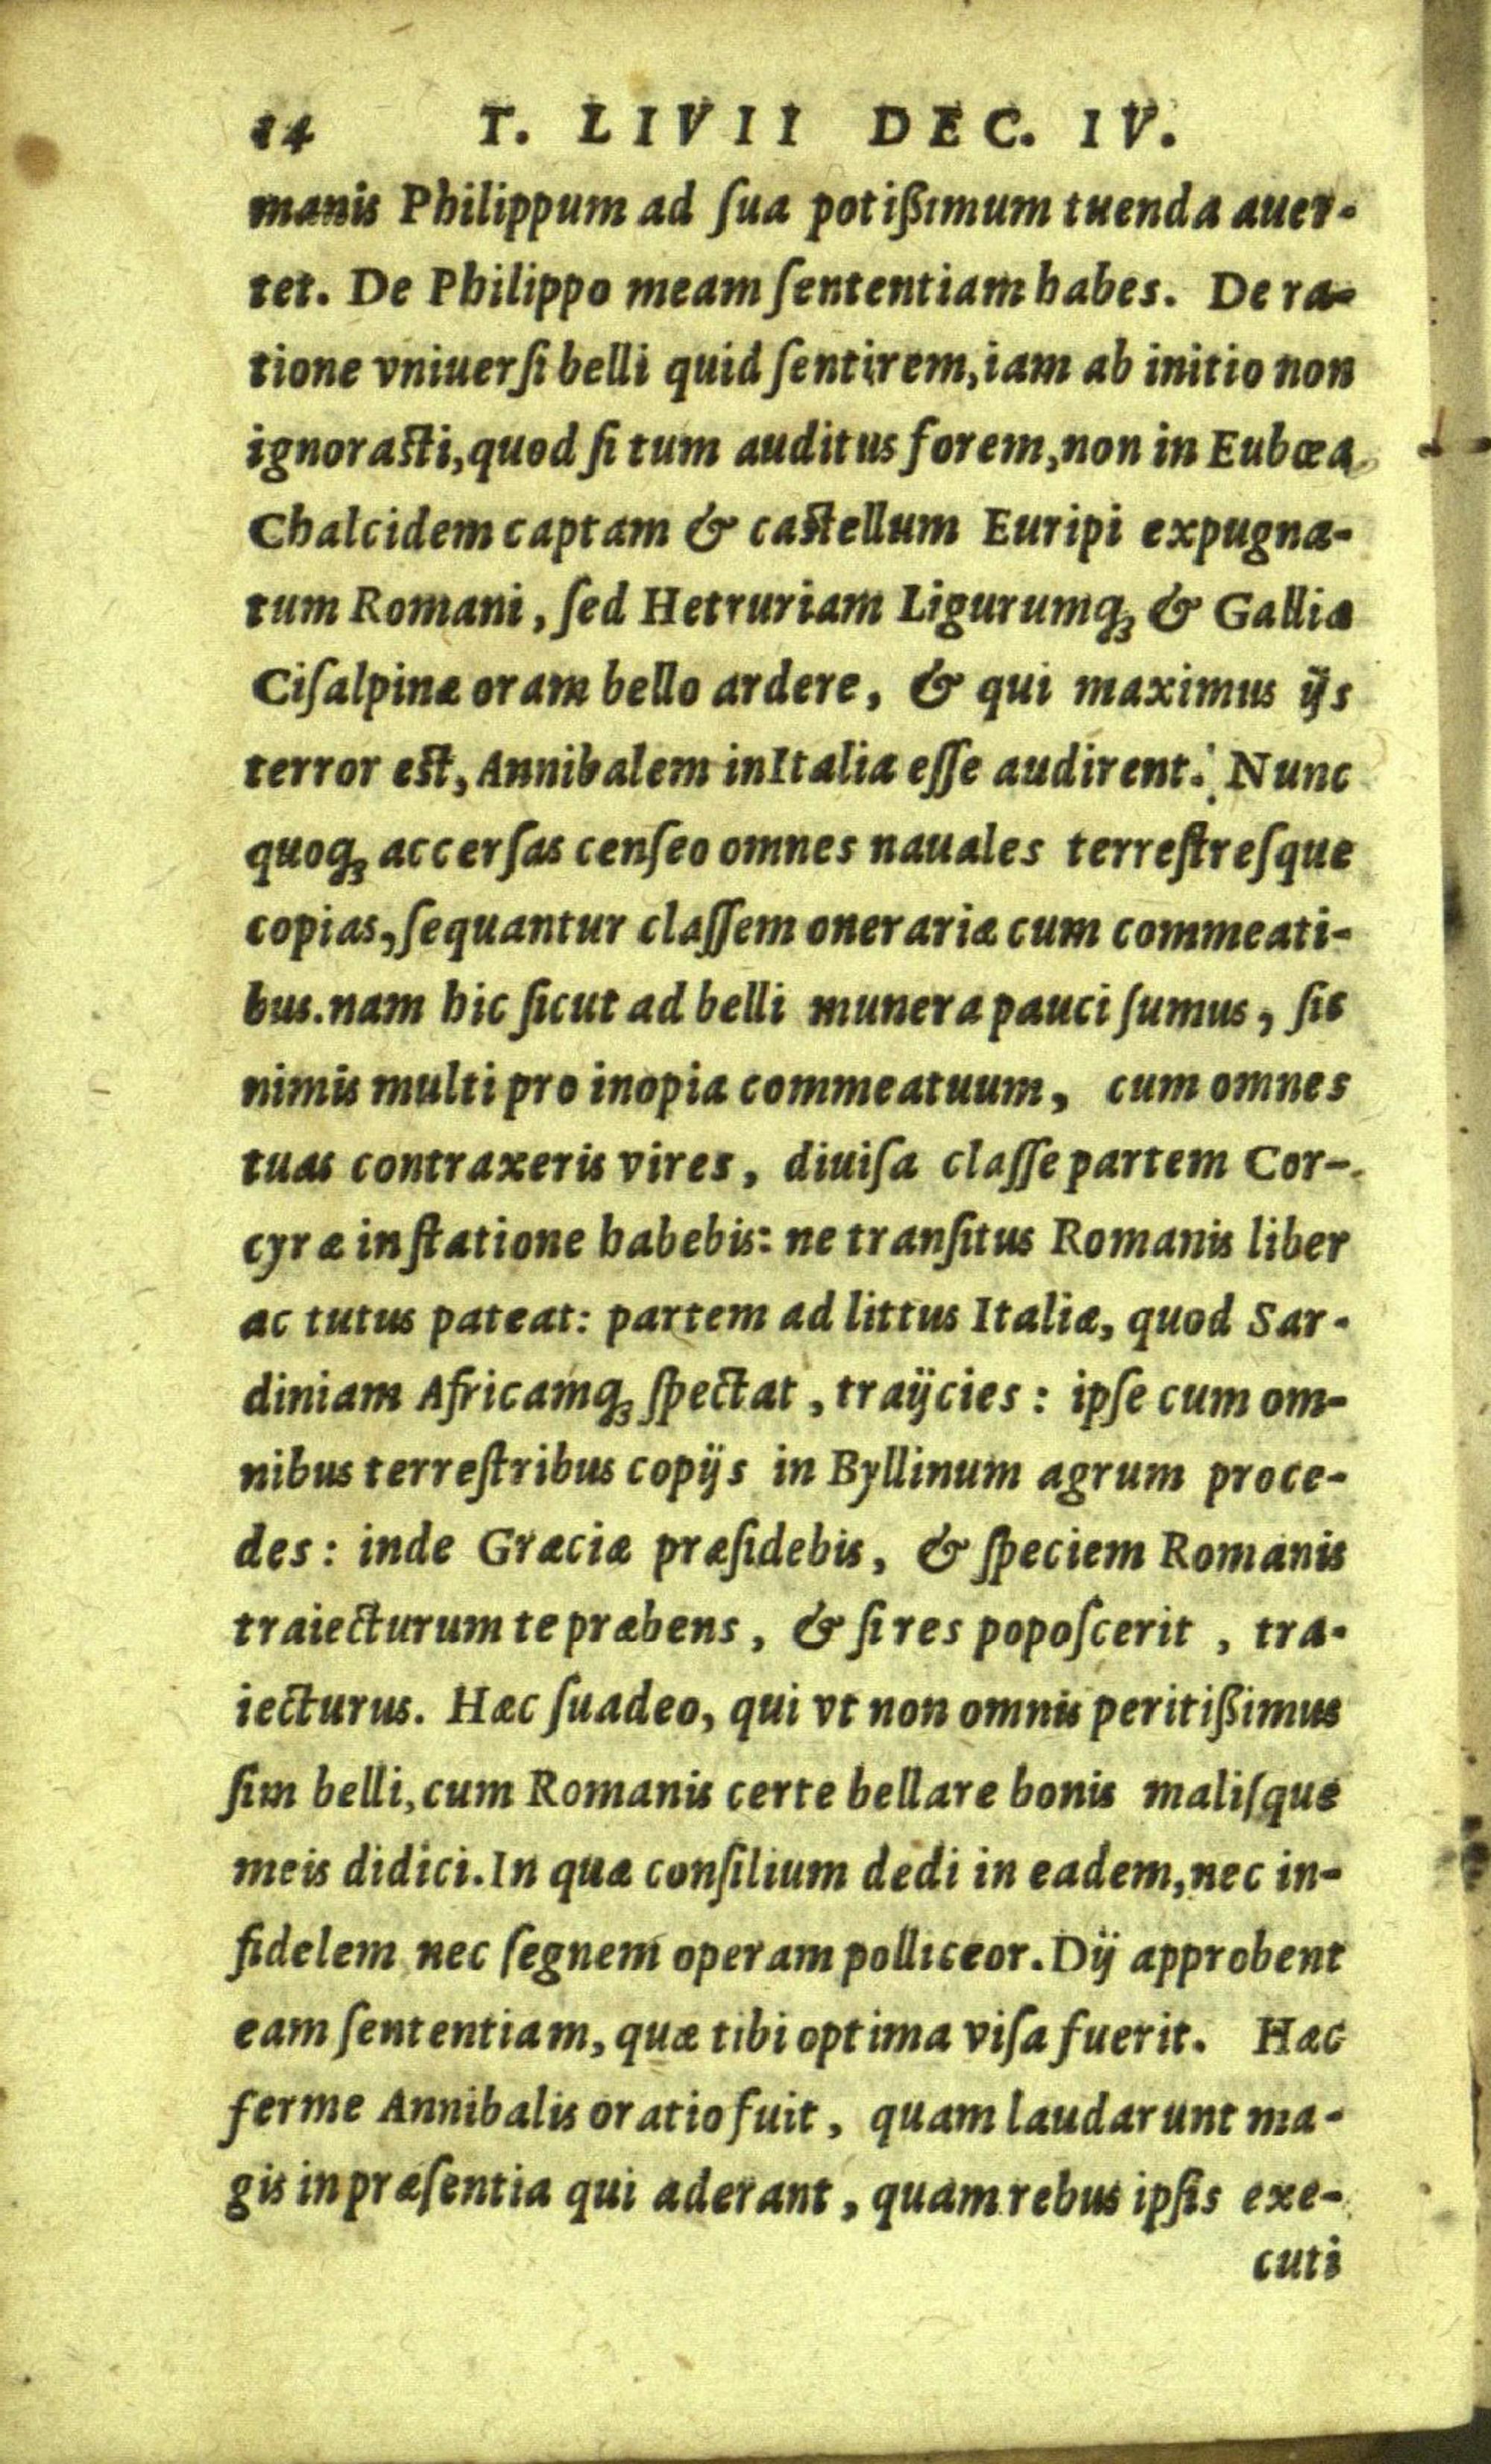 14 T. LIVII DEC. IV.
manis Philippum ad ſua potißimum tuenda auer-
tet. De Philippo meam ſententiam habes. De ra-
tione vniuerſi belli quid ſentirem, iam ab initio non
ignoraſti, quod ſi tum auditus forem, non in Eubœa
Chalcidem captam & caſtellum Euripi expugna-
tum Romani, ſed Hetruriam Ligurumq; & Galliæ
Ciſalpinæ oram bello ardere, & qui maximus ijs
terror eſt, Annibalem in Italia eſſe audirent. Nunc
quoq; accerſas cenſeo omnes nauales terreſtreſque
copias, ſequantur claſſem onerariæ cum commeati-
bus. nam hic ſicut ad belli munera pauci ſumus, ſic
nimis multi pro inopia commeatuum, cum omnes
tuas contraxeris vires, diuiſa claſſe partem Cor-
cyræ in ſtatione habebis: ne tranſitus Romanis liber
ac tutus pateat: partem ad littus Italiæ, quod Sar-
diniam Africamq; ſpectat, traijcies: ipſe cum om-
nibus terreſtribus copijs in Byllinum agrum proce-
des: inde Græciæ præſidebis, & ſpeciem Romanis
traiecturum te præbens, & ſi res popoſcerit, tra-
iecturus. Hæc ſuadeo, qui vt non omnis peritißimus
ſim belli, cum Romanis certe bellare bonis maliſque
meis didici. In quæ conſilium dedi in eadem, nec in-
fidelem nec ſegnem operam polliceor. Dij approbent
eam ſententiam, quæ tibi optima viſa fuerit. Hæc
ferme Annibalis oratio fuit, quam laudarunt ma-
gis in præſentia qui aderant, quam rebus ipſis exe-
cuti